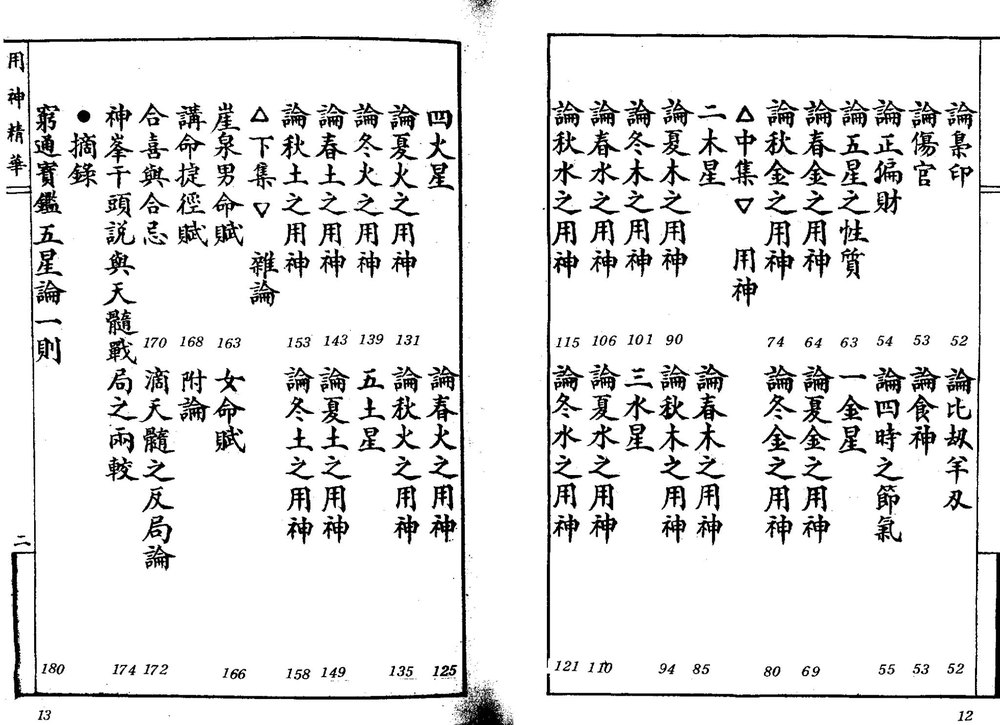 論梟印 52 論比刼羊刄 52
論傷官 53 論食神 53
論正偏財 54 論四時之節氣 55
論五星之性質 63 一金星
論春金之用神 64 論夏金之用神 69
論秋金之用神 74 論冬金之用神 80
△中集▽ 用神
二木星 論春木之用神 85
論夏木之用神 90 論秋木之用神 94
論冬木之用神 101 三水星
論春水之用神 106 論夏水之用神 110
論秋水之用神 115 論冬水之用神 121
12
四火星 論春火之用神 125
論夏火之用神 131 論秋火之用神 135
論冬火之用神 139 五土星
論春土之用神 143 論夏土之用神 149
論秋土之用神 153 論冬土之用神 158
△下集▽ 雜論
崖泉男命賦 163 女命賦 166
講命捷徑賦 168 附論
合喜與合忌 170 滴天髓之反局論 172
神峯干頭説與天髓戰局之兩較 174
●摘錄
窮通寶鑑五星論一則 180
用神精華
二
13